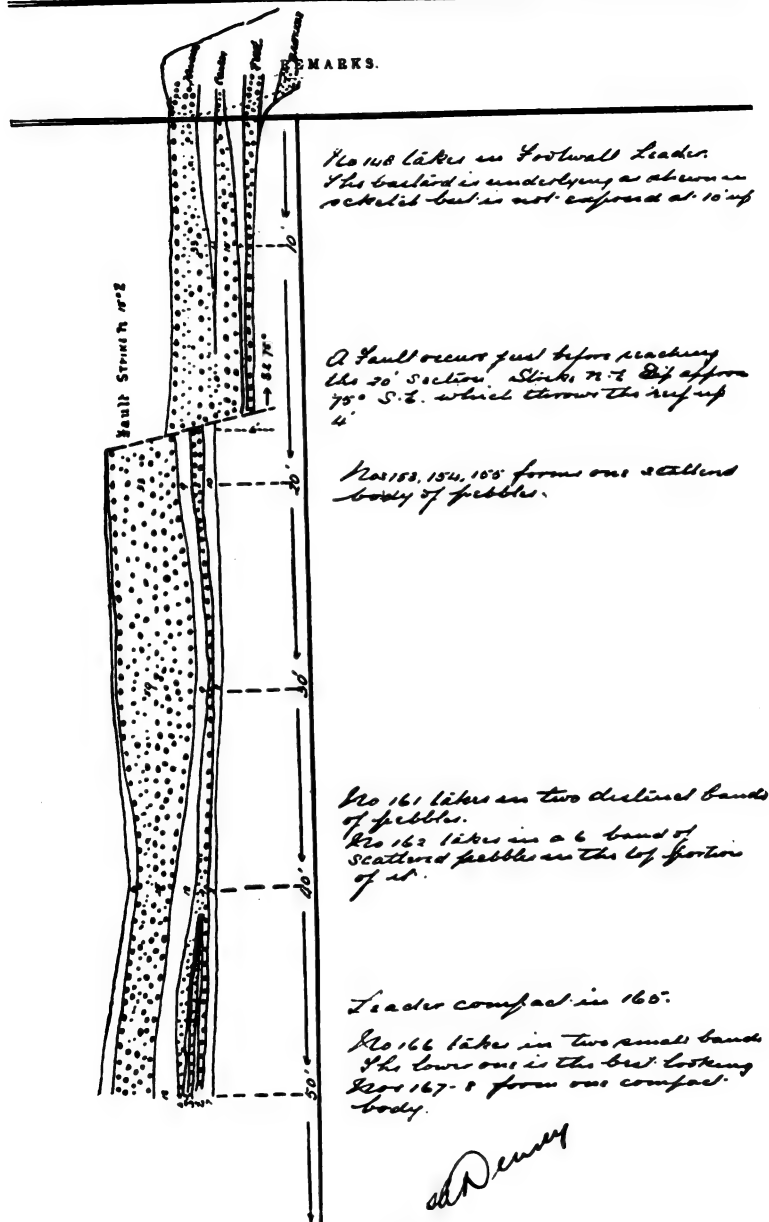 REMARKS.
No 148 takes in Footwall Leader.
The bastard is underlying as shewn in
scketch but is not exposed at 10' up
10'
Fault Strike N 15° E
SE 75°
A Fault occurs just before reaching
the 20' Section. Strike N.E. Dip approx
75° S.E. which throws the reef up
4'
20'
Nos 153, 154, 155 forms one scattered
body of pebbles.
30'
No 161 takes in two distinct bands
of pebbles.
No 162 takes in a 6" band of
scattered pebbles in the top portion
of it.
40'
Leader compact in 165.
No 166 takes in two small bands
The lower one is the best looking
Nos 167-8 form one compact
body.
50'